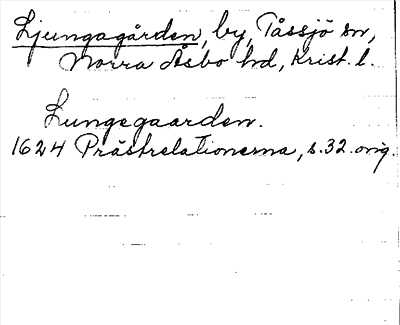 Ljungagården, by, Tåssjö sn,
Norra Åsbo hd, Krist. l.
Lungegaarden.
1624 Prästrelationerna, s. 32. orig.